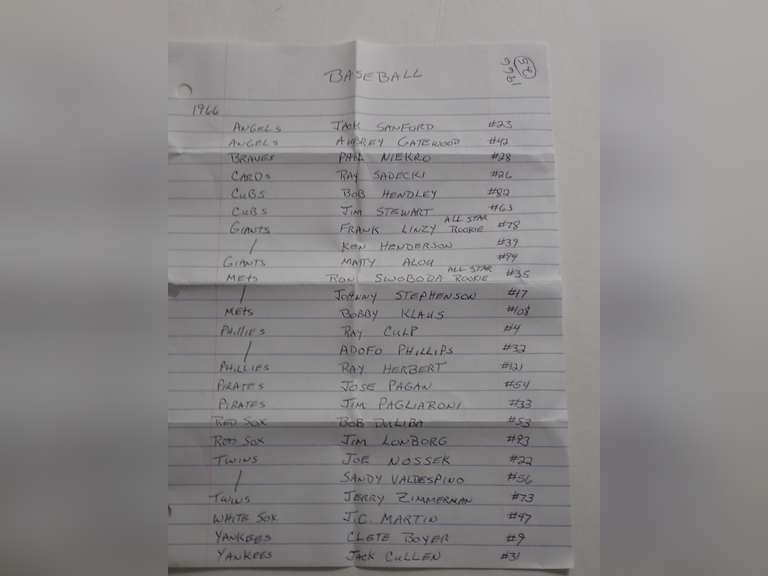 BASEBALL
1966
ANGELS JACK SANFORD #23
ANGELS AUBREY GATEWOOD #42
BRAVES PHIL NIEKRO #28
CARDS RAY SADECKI #26
CUBS BOB HENDLEY #82
CUBS JIM STEWART #63
GIANTS FRANK LINZY ALL STAR ROOKIE #78
/ KEN HENDERSON #39
GIANTS MATTY ALOU #94
METS RON SWOBODA ALL STAR ROOKIE #35
/ JOHNNY STEPHENSON #17
METS BOBBY KLAUS #108
PHILLIES RAY CULP #4
/ ADOFO PHILLIPS #32
PHILLIES RAY HERBERT #121
PIRATES JOSE PAGAN #54
PIRATES JIM PAGLIARONI #33
RED SOX BOB DULIBA #53
RED SOX JIM LONBORG #93
TWINS JOE NOSSEK #22
/ SANDY VALDESPINO #56
TWINS JERRY ZIMMERMAN #73
WHITE SOX J.C. MARTIN #47
YANKEES CLETE BOYER #9
YANKEES JACK CULLEN #31